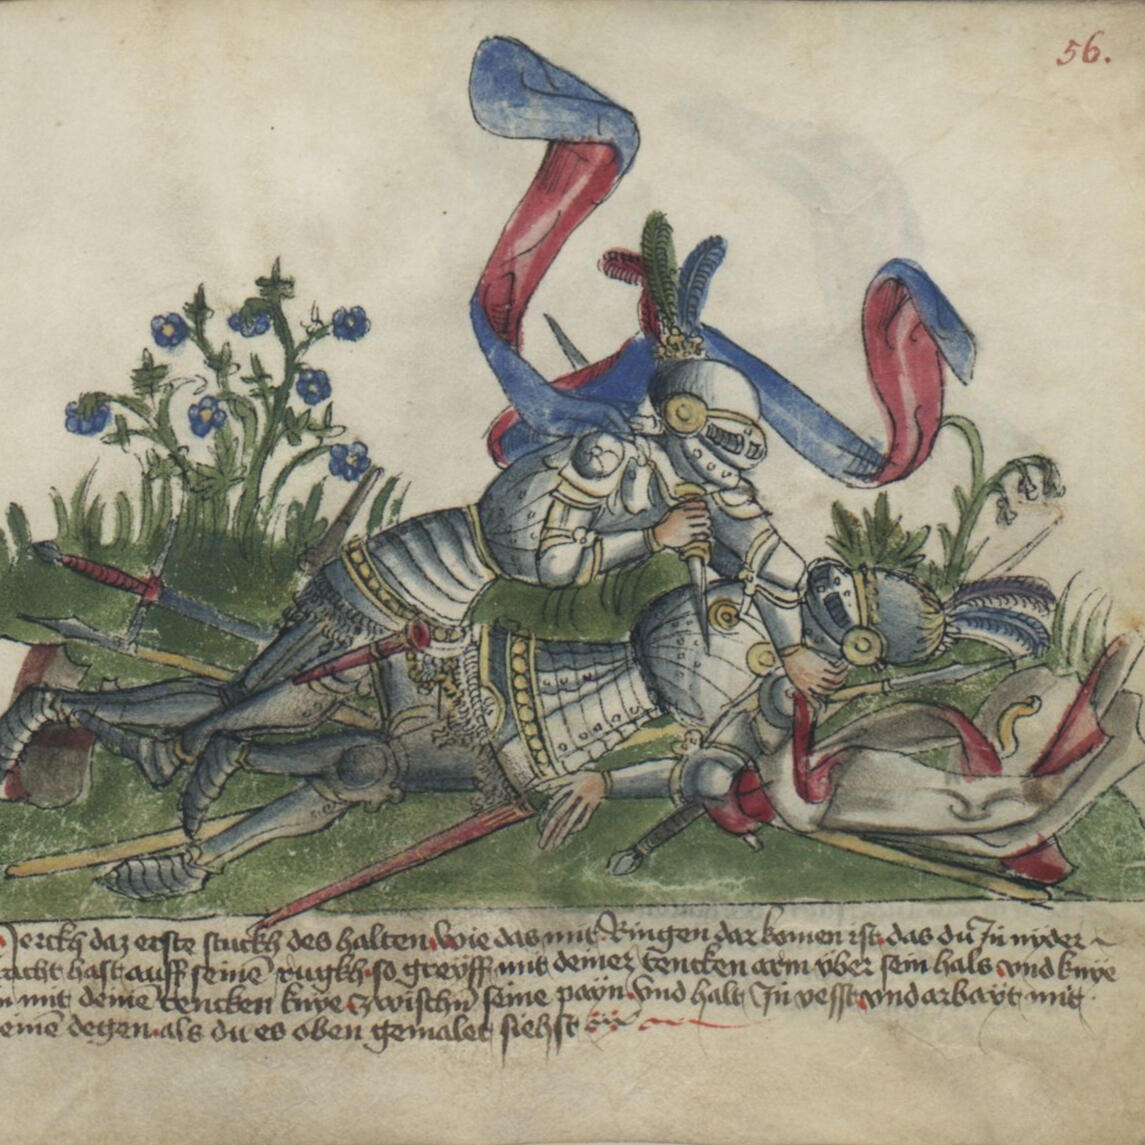 56.
Merckh daz erste stuckh des halten. wie das mit Ringen dar komen ist. das du In nyder
racht hast auff seinē rugkh. so greyff mit deinez tencken arm vber sein hals vnd knye
n mit deinē tencken knye zwischn̄ seine payn. vnd halt In vesst. vnd arbayt mit
einē degen. als du es oben gemalet siehst